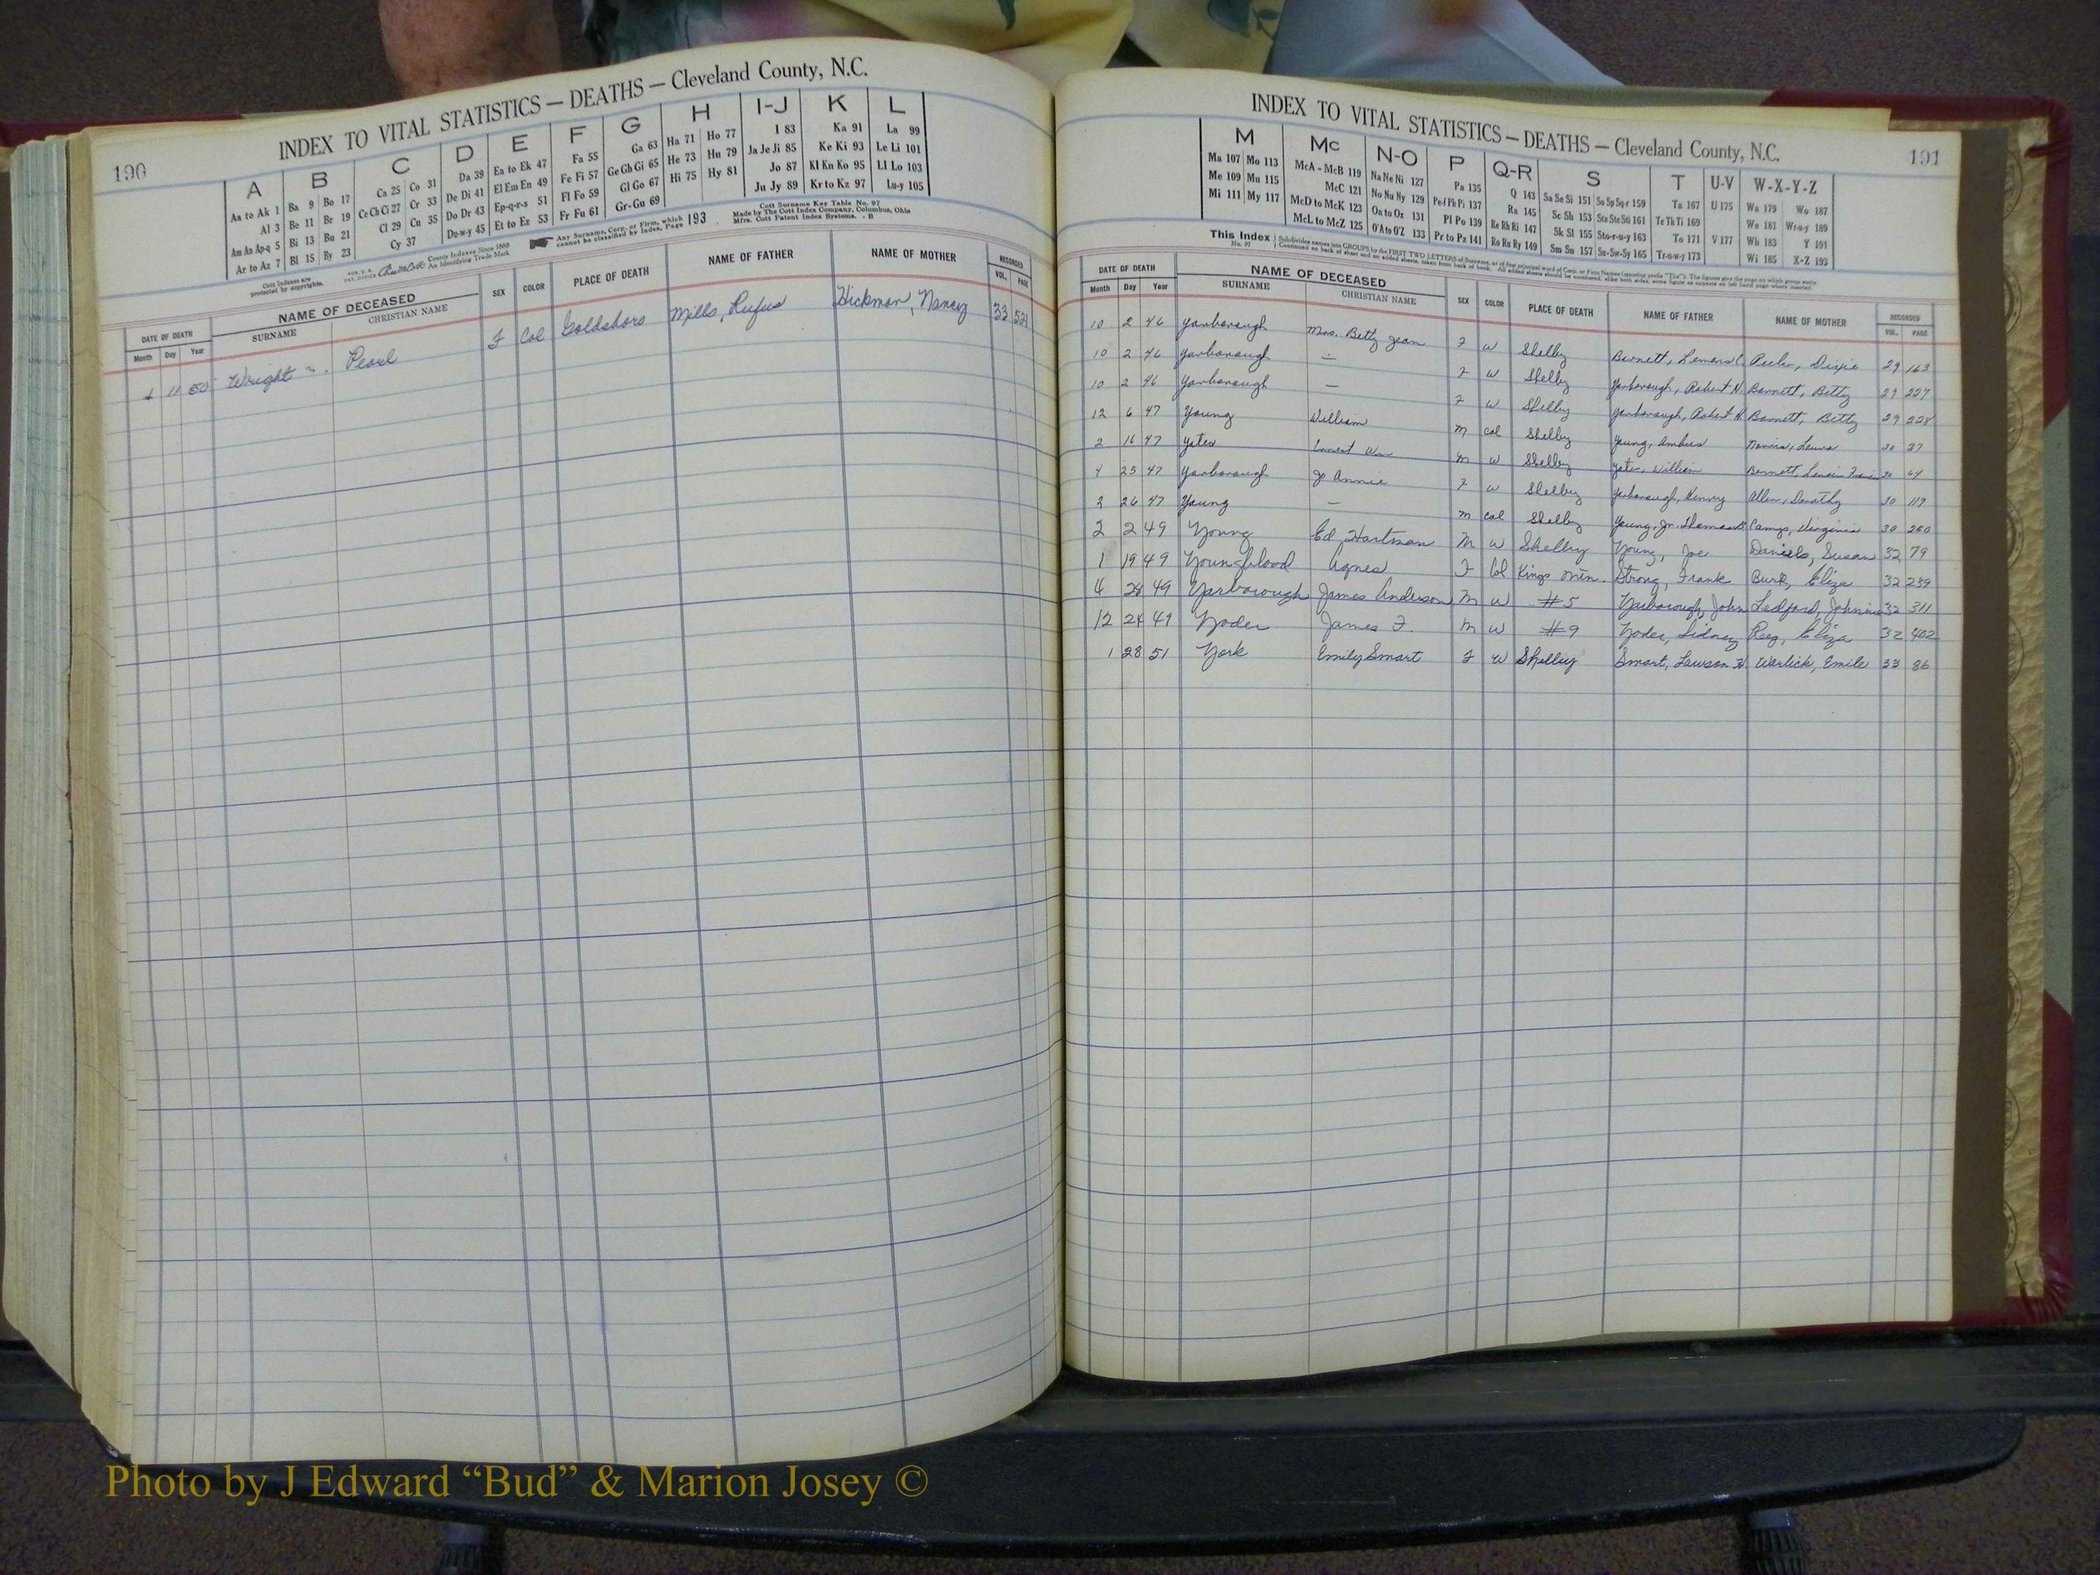 190
INDEX TO VITAL STATISTICS — DEATHS — Cleveland County, N.C.
A B C D E F G H I-J K L
Aa to Ak 1 Ba 9 Bo 17 Ca 25 Co 31 Da 39 Ea to Ek 47 Fa 55 Ga 63 Ha 71 Ho 77 I 83 Ka 91 La 99
Al 3 Be 11 Br 19 Ce Ch Ci 27 Cr 33 De Di 41 El Em En 49 Fe Fi 57 Ge Gh Gi 65 He 73 Hu 79 Ja Je Ji 85 Ke Ki 93 Le Li 101
Am An Ap-q 5 Bi 13 Bu 21 Cl 29 Cu 35 Do Dr 43 Ep-q-r-s 51 Fl Fo 59 Gl Go 67 Hi 75 Hy 81 Jo 87 Kl Kn Ko 95 Ll Lo 103
Ar to Az 7 Bl 15 By 23 Cy 37 Du-w-y 45 Et to Ez 53 Fr Fu 61 Gr-Gu 69 Ju Jy 89 Kr to Kz 97 Lu-y 105
Cott Indexes are protected by copyrights. County Indexes Since 1888 An Identifying Trade Mark
Any Surname, Corp. or Firm, which cannot be classified by Index, Page 193
Cott Surname Key Table No. 97
Made by The Cott Index Company, Columbus, Ohio
Mfrs. Cott Patent Index Systems. - B
DATE OF DEATH NAME OF DECEASED SEX COLOR PLACE OF DEATH NAME OF FATHER NAME OF MOTHER RECORDED
Month Day Year SURNAME CHRISTIAN NAME VOL. PAGE
11 50 Wright Pearl F Col Goldsboro Mills, Rufus Hickman, Nancy 33 521
INDEX TO VITAL STATISTICS — DEATHS — Cleveland County, N.C.
191
M Mc N-O P Q-R S T U-V W-X-Y-Z
Ma 107 Mo 113 McA - McB 119 Na Ne Ni 127 Pa 135 Q 143 Sa Se Si 151 So Sp Sq-r 159 Ta 167 U 175 Wa 179 Wo 187
Me 109 Mu 115 McC 121 No Nu Ny 129 Pe-f Ph Pi 137 Ra 145 Sc Sh 153 Sta Ste Sti 161 Te Th Ti 169 We 181 Wr-u-y 189
Mi 111 My 117 McD to McK 123 Oa to Oz 131 Pl Po 139 Re Rh Ri 147 Sk Sl 155 Sto-r-u-y 163 To 171 V 177 Wh 183 Y 191
McL to McZ 125 O'A to O'Z 133 Pr to Pz 141 Ro Ru Ry 149 Sm Sn 157 Su-Sw-Sy 165 Tr-u-w-y 173 Wi 185 X-Z 193
This Index No. 97
DATE OF DEATH NAME OF DECEASED SEX COLOR PLACE OF DEATH NAME OF FATHER NAME OF MOTHER RECORDED
Month Day Year SURNAME CHRISTIAN NAME VOL. PAGE
10 2 46 Yarborough Mrs. Betty Jean F W Shelby Barnett, Dixie 29 163
10 2 46 Yarborough — F W Shelby Yarborough, Robert N. Barnett, Betty 29 227
10 2 46 Yarborough — F W Shelby Yarborough, Robert N. Barnett, Betty 29 228
12 6 47 Young William M Col Shelby Young, Laura 30 37
2 16 47 Yates Ernest Wm M W Shelby Yates, William 30 64
4 25 47 Yarborough Jo Annie F W Shelby Yarborough, Henry Allen, Dorothy 30 119
2 26 47 Young — M Col Shelby Young, Jr. Thomas Camp, Virginia 30 250
2 2 49 Young Ed Hartman M W Shelby Young, Joe Daniels, Susan 32 79
1 19 49 Youngblood Agnes F Col Kings Mtn. Strong, Frank Burk, Eliza 32 239
28 49 Yarborough James Anderson M W #5 Yarborough, John Ledford, 32 311
12 24 49 Yoder James F. M W #9 Yoder, Sidney Eliza 32 402
1 28 51 York Emily Smart F W Shelby Smart, Lawson Warlick, Emile 33 86
Photo by J Edward “Bud” & Marion Josey ©